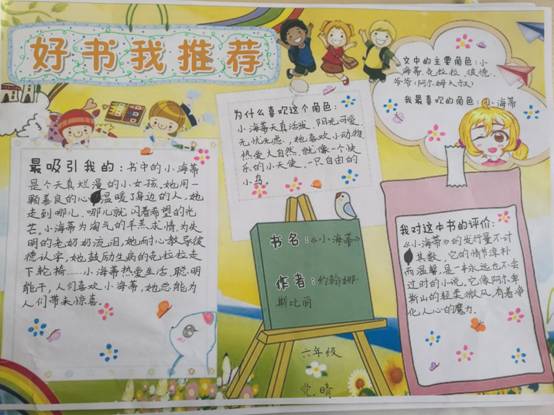 好书我推荐
文中的主要角色:小
海蒂、克拉拉、彼德、
爷爷(阿尔姆大叔)
我最喜欢的角色:小海蒂
为什么喜欢这个角色:
小海蒂天真活泼,阳光可爱
无忧无虑,她喜欢小动物
热爱大自然,就像一个快
乐的小天使,一只自由的
小鸟
最吸引我的:书中的小海蒂
是个天真烂漫的小女孩,她用一
颗善良的心温暖了身边的人,她
走到哪儿,哪儿就闪着希望的光
芒。小海蒂为淘气的羊羔求情,为失
明的老奶奶流泪,她耐心教导彼
德认字,她鼓励生病的克拉拉走
下轮椅……小海蒂热爱生活,聪明
能干,人们喜欢小海蒂,她总能为
人们带来惊喜。
书名:《小海蒂》
作者:约翰娜
斯比丽
六年级
晴
我对这本书的评价:
《小海蒂》的发行量不计
其数,它的情节淳朴
而温馨,是一本永远也不会
过时的小说,它像阿尔卑
斯山的轻柔微风,有着净
化人心的魔力。